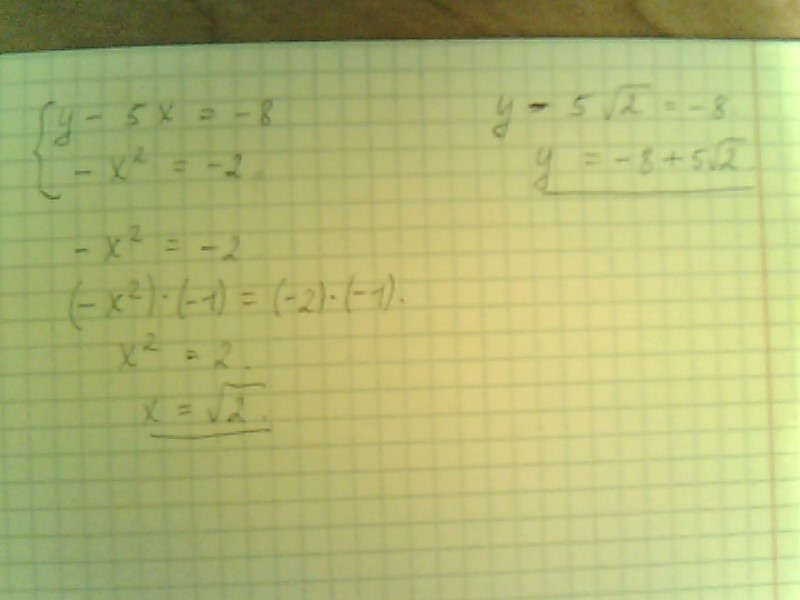 y - 5x = -8
- x² = -2.
- x² = -2
(- x²)·(-1) = (-2)·(-1).
x² = 2.
x = √2.
y - 5√2 = -8
y = -8 + 5√2